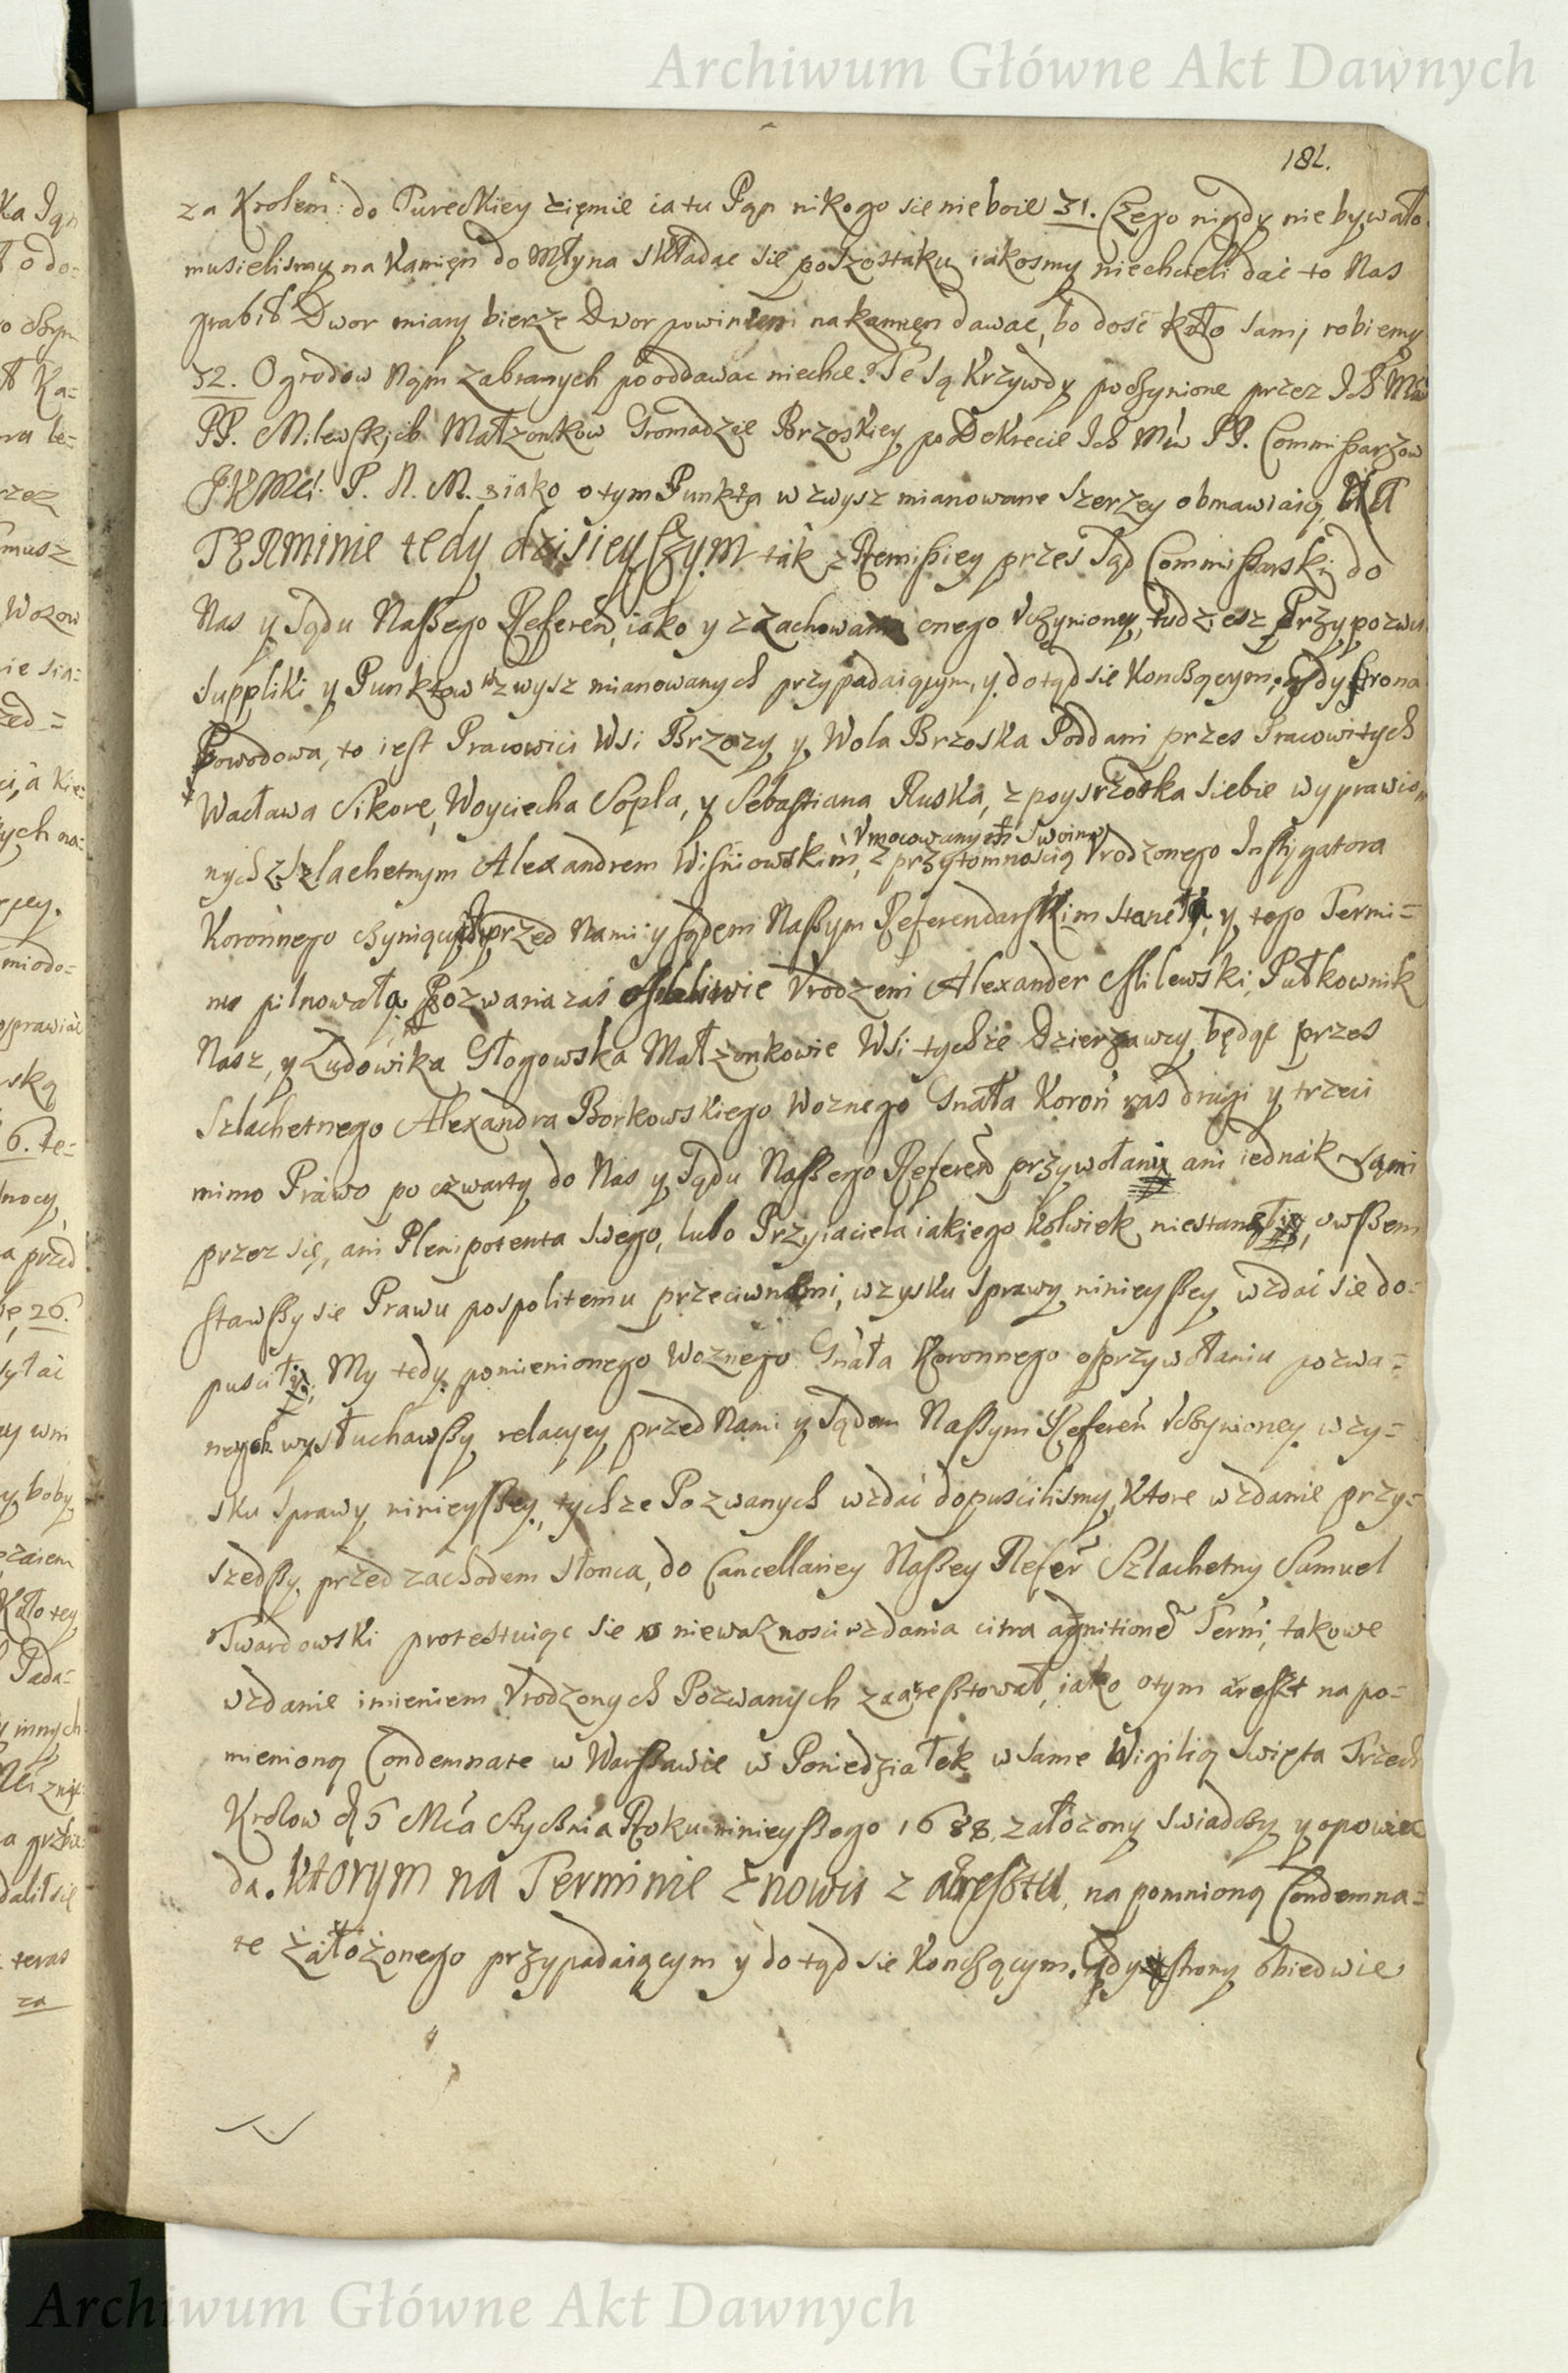 Archiwum Główne Akt Dawnych
182.
za Krolem: do Tureckiey ziemie ia tu Pan nikogo sie nie boie 31. Czego nigdy nie bywało
musielismy na Kamięn do Młyna składac sie po szostaku iakosmy niechcieli dać to Nas
grabił Dwor miary bierze Dwor powinien na kamięn dawac, bo dość koło sami robiemy
32. Ogrodow Nąm zabranych pooddawac niechce. Te są Krzywdy poczynione przez Ich Mći
PP. Milewskich Małzonkow Gromadzie Brzoskiey po Dekrecie Ich Mćiw PP. Commissarzow
JKMći: P. N. M. iako o tym Punkta wzwysz mianowane szerzey obmawiaią. Na
TERminie tedy dzisieyszym tak z Remissiey przes Sąd Commissarski do
Nas y Sądu Nassego Referen, iako y z zachowania onego Vczynioney, tudziesz Przypozwu
suppliki y Punktow wzwysz mianowanych przypadaiącym, y dotąd sie Konczącym, gdy strona
Powodowa, to iest Pracowici Wsi Brzozy y Wola Brzoska Poddani przes Pracowitych
Wacława Sikorę, Woyciecha Sopla, y Sebastiana Ruska, z poysrzodka siebie wyprawio
Vmocowanym swoim
nych z Szlachetnym Alexandrem Wisniowskim, z przytomnoscią Vrodzonego Instygatora
Koronnego czyniąc przed Nami y sądem Nassym Referendarskim stanęła, y tego Termi=
nu pilnowała. Pozwania zaś Vrodzeni Alexander Milewski, Pułkownik
Nasz, y Ludowika Głogowska Małżonkowie Wsi tychże Dzierzawcy, będąc przes
Szlachetnego Alexandra Borkowskiego Woznego Gnała Koron raś drugi y trzeci
mimo Prawo po czwarty do Nas y Sądu Nassego Referen przywołani ani iednak sami
przez się, ani Plenipotenta swego, lubo Przyiaciela iakiego kolwiek niestanęli, owssem
stawssy sie Prawu pospolitemu przeciwnemi, w zysku sprawy ninieyssey wzdać sie do=
puscili, My tedy pomienionego Woznego Gnała Koronnego o przywołaniu pozwa=
nych wysłuchawssy relacyey przed Nami y Sądem Nassym Referen Vczynioney w zy=
sku sprawy ninieyssey, tychze Pozwanych wzdać dopuscilismy, Ktore wzdanie przy=
szedssy przed zachodem słonca, do Cancellariey Nassey Refer Szlachetny Samuel
Twardowski protestuiąc sie o niewaznosci wzdania citra agnitione Termi, takowe
wzdanie imieniem Vrodzonych Pozwanych zaaresztował, iako o tym areszt na po=
mienioną Condemnate w Warssawie w Poniedziałek w same Wigilią swięta Trzech
Krolow d 5 Mća Stycznia Roku ninieyssego 1688 założony swiadczy y opowia
da. Ktorym na Terminie znowu z aresztu, na pomnioną Condemna=
te założonego przypadaiącym y dotąd sie Konczącym. Gdy strony obiedwie
Archiwum Główne Akt Dawnych